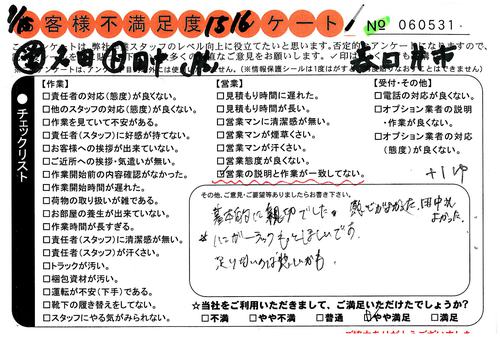 お客様不満足度1516アンケート! No 060531
員スタッフのレベル向上に役立てたいと思います。否定的なアンケートになりますので、
春日井市
チェックリスト
【作業】
□責任者の対応(態度)が良くない。
□他のスタッフの対応(態度)が良くない。
□作業を見ていて不安がある。
□責任者(スタッフ)に好感が持てない。
□お客様への挨拶が出来ていない。
□ご近所への挨拶・気遣いが無い。
□作業開始前の内容確認がなかった。
□作業開始時間が遅れた。
□荷物の取り扱いが雑である。
□お部屋の養生が出来ていない。
□作業時間が長すぎる。
□責任者(スタッフ)に清潔感が無い。
□責任者(スタッフ)が汗くさい。
□トラックが汚い。
□梱包資材が汚い。
□運転が不安(下手)である。
□靴下の履き替えをしてない。
□スタッフにやる気がみられない。
【営業】
□見積もり時間に遅れた。
□見積もり時間が長い。
□営業マンに清潔感が無い。
□営業マンが煙草くさい。
□営業マンが汗くさい。
□営業態度が良くない。
□営業の説明と作業が一致してない。
【受付・その他】
□電話の対応が良くない。
□オプション業者の説明
・作業が良くない。
□オプション業者の対応
(態度)が良くない。
その他、ご意見・ご要望等ありましたらお書き下さい。
基本的に親切でした。
*ハンガーラックもっとほしいです。
足りないのは悲しいかも。
☆当社をご利用いただきまして、ご満足いただけたでしょうか?
□不満 □やや不満 □普通 □やや満足 □満足